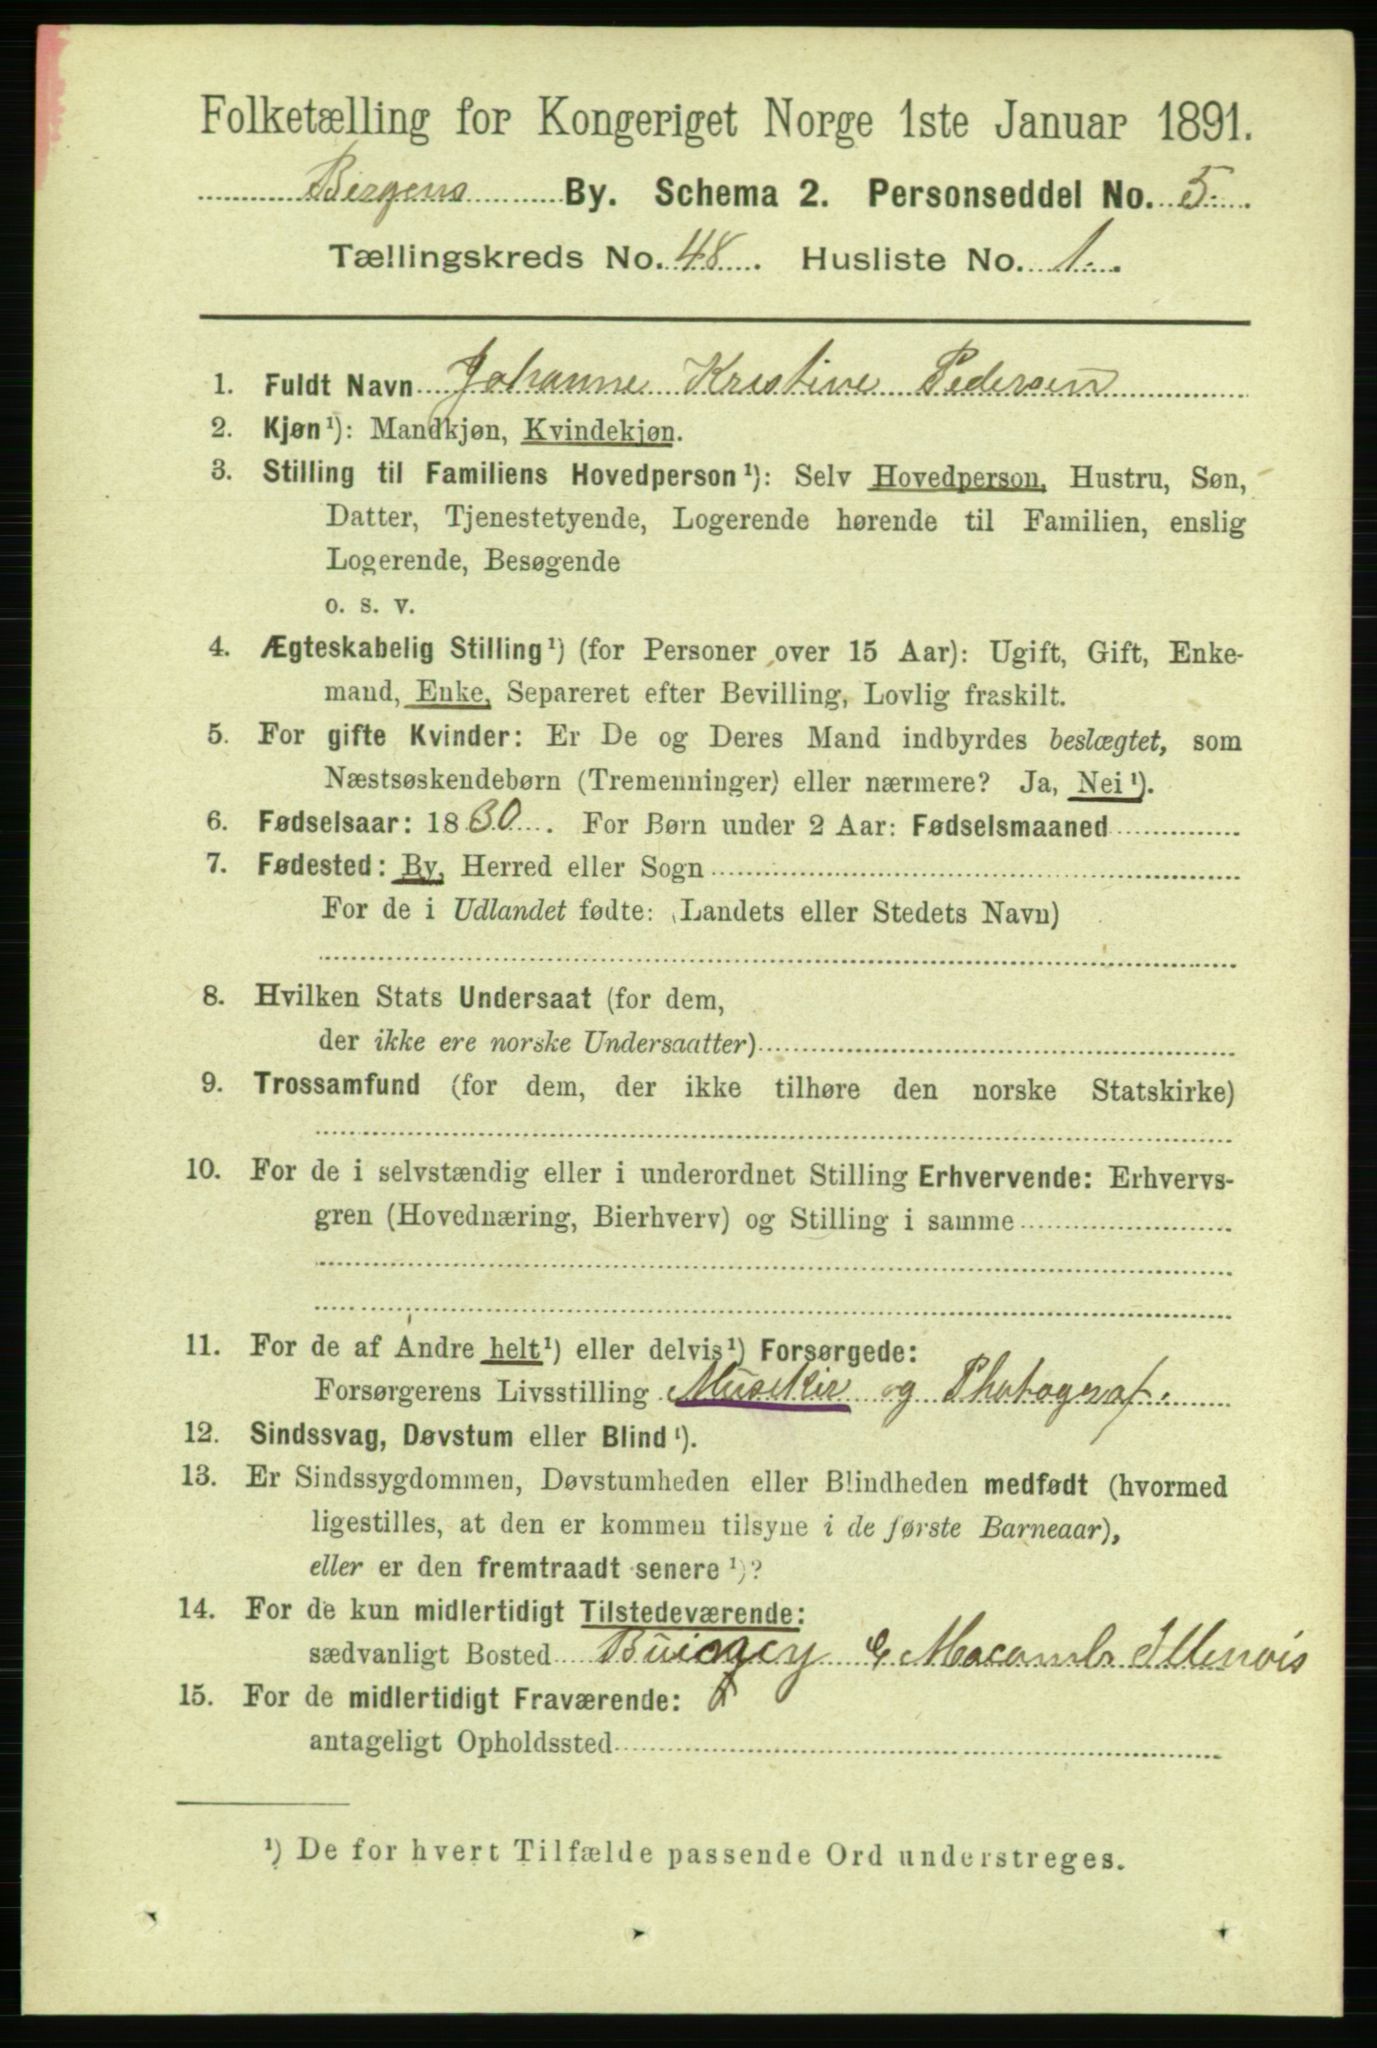 Folketælling for Kongeriget Norge 1ste Januar 1891.
Bergens By. Schema 2. Personseddel No. 5.
Tællingskreds No. 48. Husliste No. 1.
1. Fuldt Navn Johanne Kristine Pedersen
2. Kjøn¹): Mandkjøn, Kvindekjøn.
3. Stilling til Familiens Hovedperson¹): Selv Hovedperson, Hustru, Søn,
Datter, Tjenestetyende, Logerende hørende til Familien, enslig
Logerende, Besøgende
o. s. v.
4. Ægteskabelig Stilling¹) (for Personer over 15 Aar): Ugift, Gift, Enke-
mand, Enke, Separeret efter Bevilling, Lovlig fraskilt.
5. For gifte Kvinder: Er De og Deres Mand indbyrdes beslægtet, som
Næstsøskendebørn (Tremenninger) eller nærmere? Ja, Nei¹).
6. Fødselsaar: 1830. For Børn under 2 Aar: Fødselsmaaned
7. Fødested: By, Herred eller Sogn
For de i Udlandet fødte: (Landets eller Stedets Navn)
8. Hvilken Stats Undersaat (for dem,
der ikke ere norske Undersaatter)
9. Trossamfund (for dem, der ikke tilhøre den norske Statskirke)
10. For de i selvstændig eller i underordnet Stilling Erhvervende: Erhvervs-
gren (Hovednæring, Bierhverv) og Stilling i samme
11. For de af Andre helt¹) eller delvis¹) Forsørgede:
Forsørgerens Livsstilling Musikir og Photograf.
12. Sindssvag, Døvstum eller Blind¹).
13. Er Sindssygdommen, Døvstumheden eller Blindheden medfødt (hvormed
ligestilles, at den er kommen tilsyne i de første Barneaar),
eller er den fremtraadt senere¹)?
14. For de kun midlertidigt Tilstedeværende:
sædvanligt Bosted Macomb Illenois
15. For de midlertidigt Fraværende:
antageligt Opholdssted
¹) De for hvert Tilfælde passende Ord understreges.